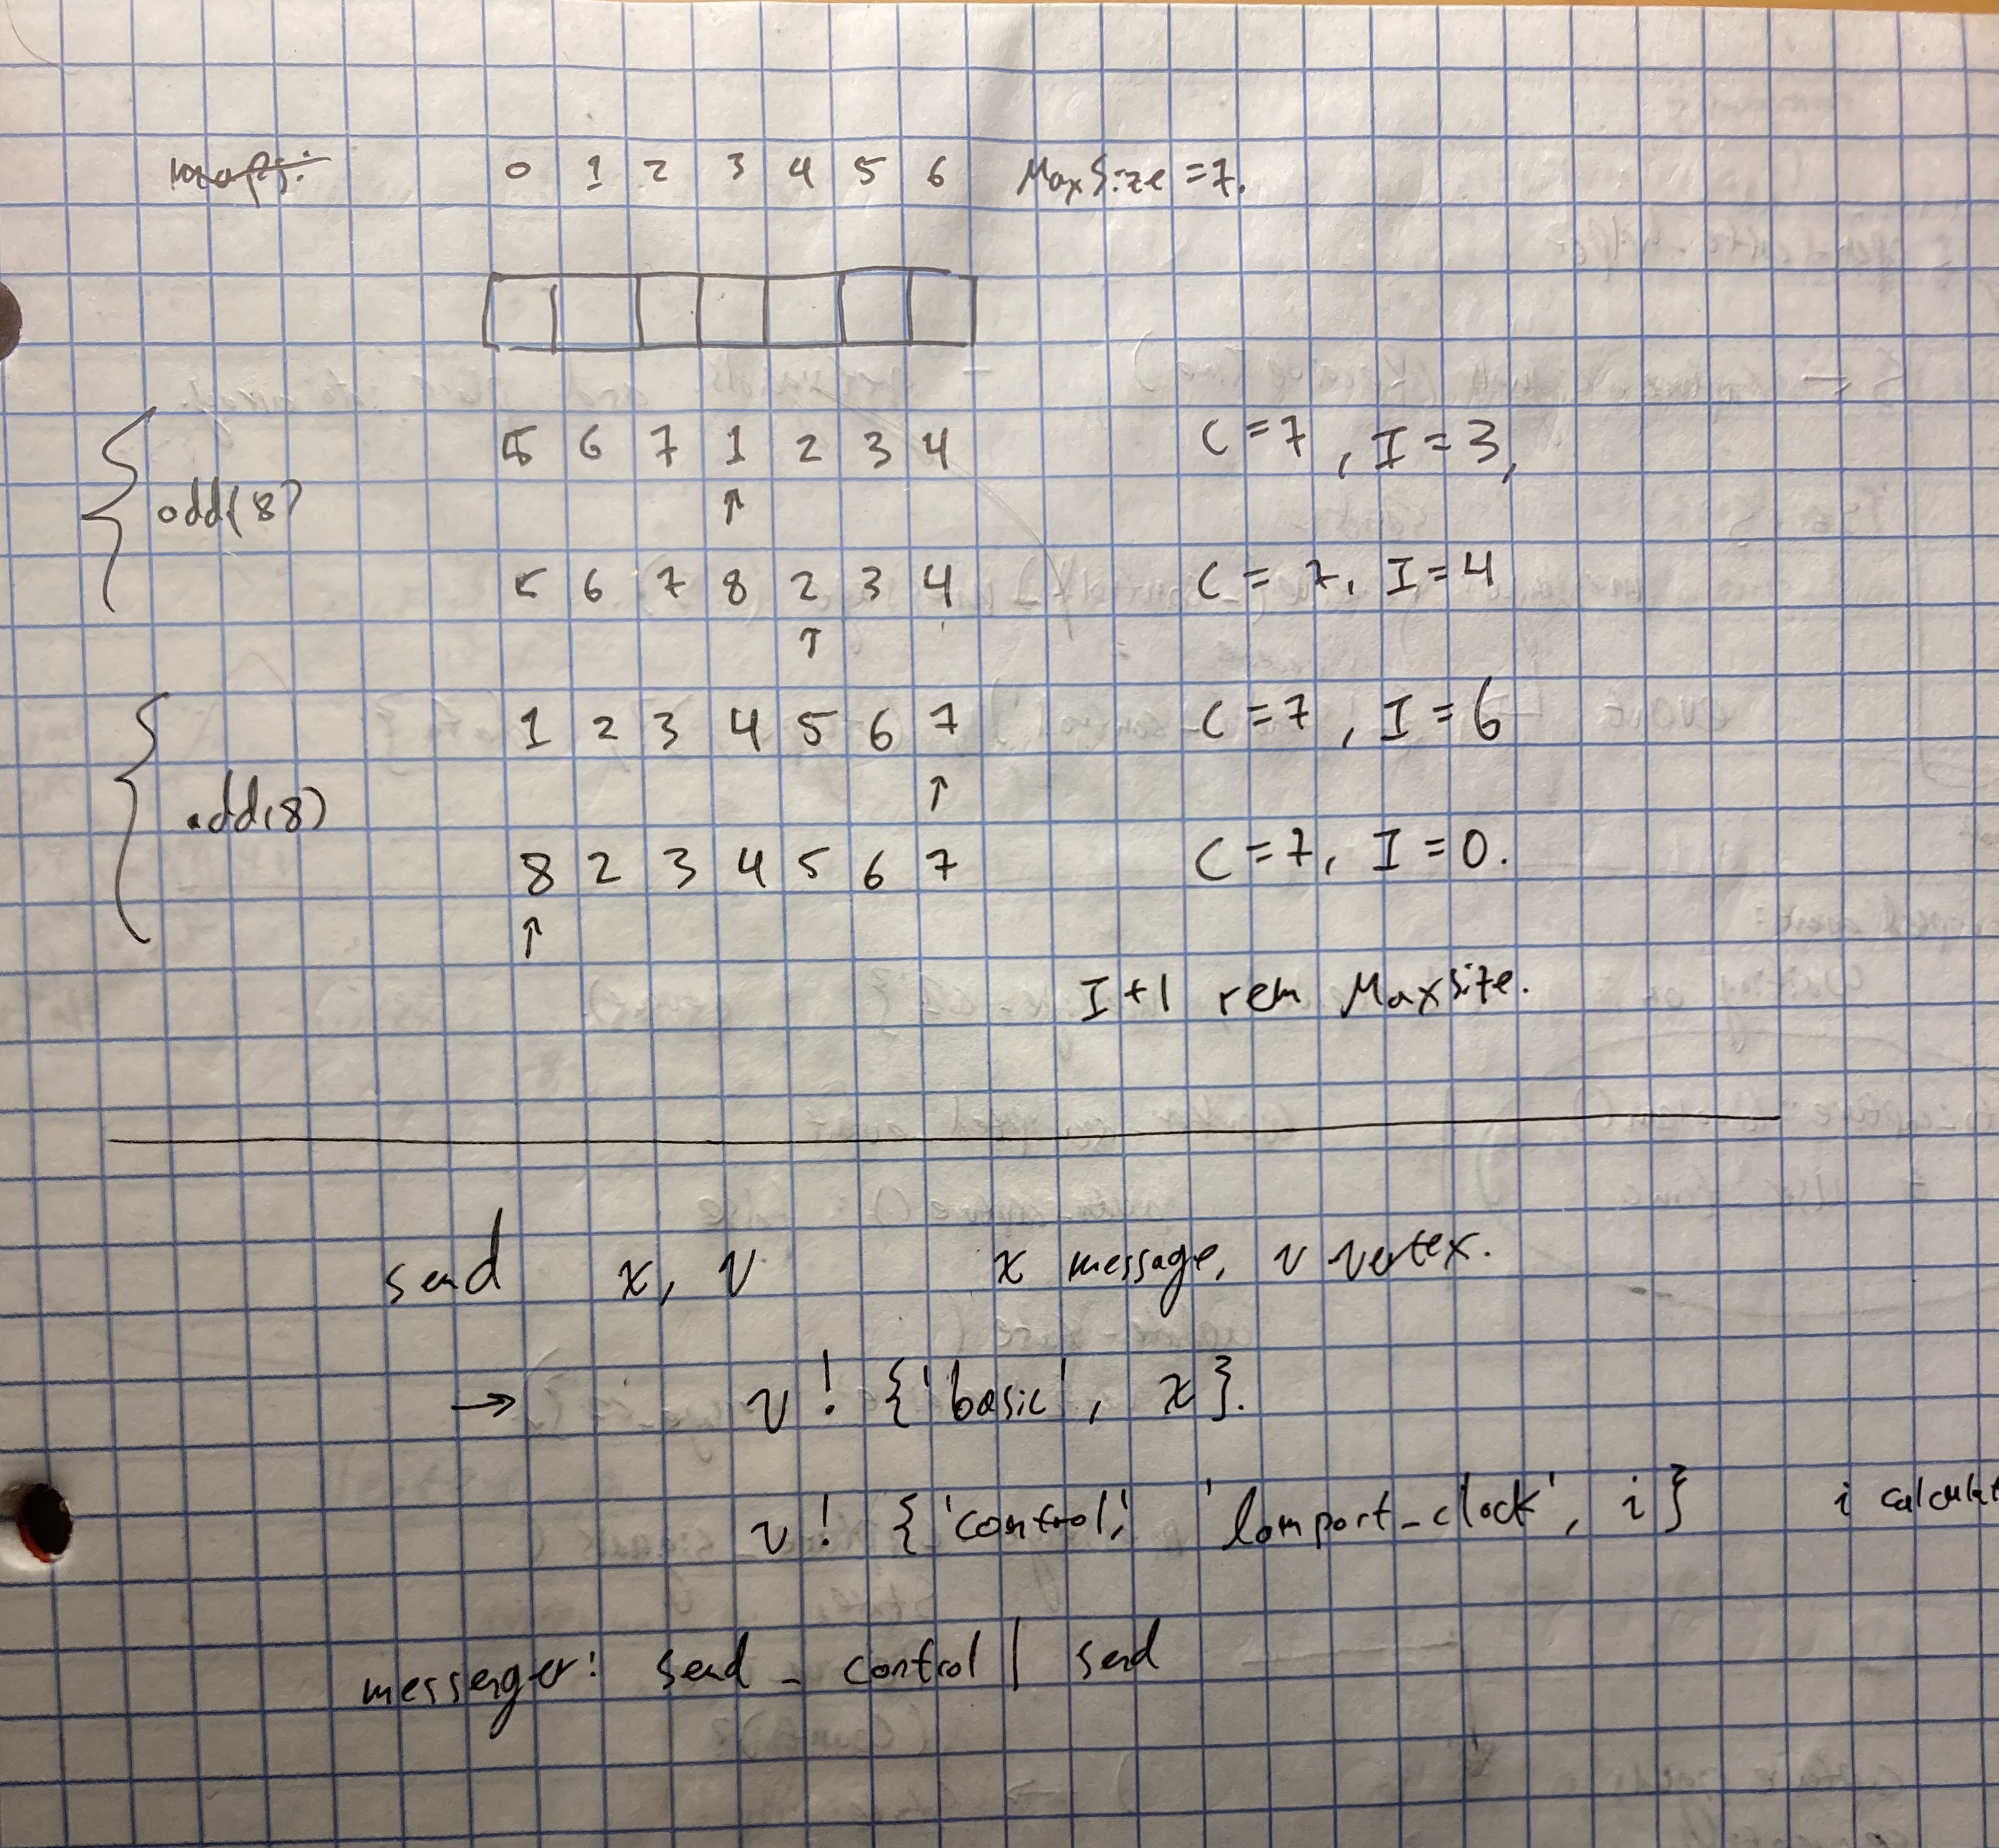 0 1 2 3 4 5 6 MaxSize = 7.
5 6 7 1 2 3 4 C = 7, I = 3,
add(8)
↑
5 6 7 8 2 3 4 C = 7, I = 4
↑
1 2 3 4 5 6 7 C = 7, I = 6
↑
add(8)
8 2 3 4 5 6 7 C = 7, I = 0.
↑
I + 1 rem MaxSize.
send x, v x message, v vertex.
→ v ! {'basic', x}.
v ! {'control', 'lamport_clock', i} i calculat
messenger: send_control | send